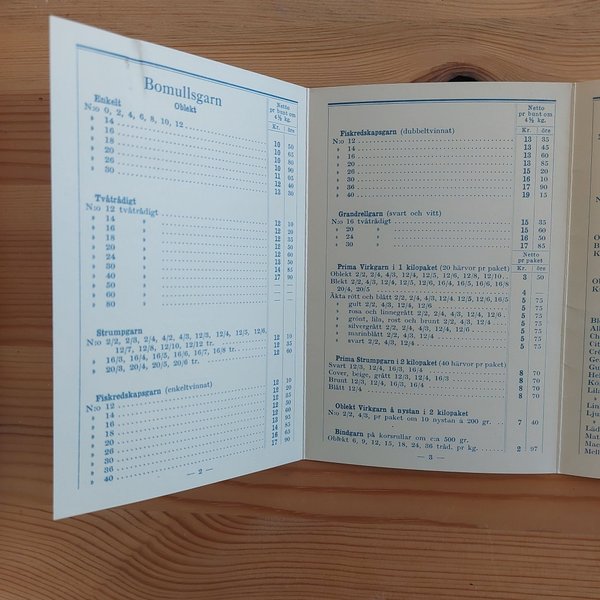 Bomullsgarn
Netto
pr bunt om
4½ kg.
Enkelt
Oblekt
Kr. öre
N:o 0, 2, 4, 6, 8, 10, 12
» 14 10 50
» 16 10 65
» 18 10 80
» 20 10 90
» 26 11 05
» 30
12 40
13 30
Tvåtrådigt
N:o 12 tvåtrådigt 12 10
» 14 » 12 20
» 16 » 12 35
» 18 » 12 50
» 20 » 12 60
» 24 » 13 50
» 30 » 14 85
» 40 » 17 90
» 50 » — —
» 60 » — —
» 80 » — —
Strumpgarn
N:o 2/2, 2/3, 2/4, 4/2, 4/3, 12/3, 12/4, 12/5, 12/6,
12/7, 12/8, 12/10, 12/12 tr. 12 10
» 16/3, 16/4, 16/5, 16/6, 16/7, 16/8 tr. 12 35
» 20/3, 20/4, 20/5, 20/6 tr. 12 60
Fiskredskapsgarn (enkeltvinnat)
N:o 12 12 10
» 14 12 20
» 16
» 18
» 20
» 26
» 30
» 36 16 90
» 40 17 90
— 2 —
Netto
pr bunt om
4½ kg.
Kr. öre
Fiskredskapsgarn (dubbeltvinnat)
N:o 12 13 35
» 14 13 45
» 16 13 60
» 20 13 85
» 26 15 20
» 30 16 10
» 36 17 90
» 40 19 15
Grandrellgarn (svart och vitt)
N:o 16 tvåtrådigt 15 35
» 20 » 15 60
» 24 » 16 50
» 30 » 17 85
Netto
pr paket
Prima Virkgarn i 1 kilopaket (20 härvor pr paket) Kr. öre
Oblekt 2/2, 2/4, 4/3, 12/4, 12/5, 12/6, 12/8, 12/10 3 50
Blekt 2/2, 4/3, 12/4, 12/5, 12/6, 16/4, 16/5, 16/6, 16/8
20/4, 20/5 4 —
Äkta rött och blått 2/2, 2/4, 4/3, 12/4, 12/5, 12/6, 16/5 5 75
» gult 2/2, 4/3, 12/4, 12/6 5 75
» rosa och linnegrått 2/2, 2/4, 4/3, 12/4, 12/6 5 75
» grönt, lila, rost och brunt 2/2, 4/3, 12/4 5 75
» silvergrått 2/2, 2/4, 4/3, 12/4, 12/6 5 75
» marinblått 2/2, 4/3, 12/4 5 75
» svart 2/2, 4/3, 12/4 5 75
Prima Strumpgarn i 2 kilopaket (40 härvor pr paket)
Svart 12/3, 12/4, 16/3, 16/4 8 70
Cover, beige, grått 12/3, 12/4, 16/3 8 70
Brunt 12/3, 12/4, 16/3, 16/4 8 70
Blått 12/4 8 70
Oblekt Virkgarn å nystan i 2 kilopaket
N:o 2/2, 4/3, pr paket om 10 nystan à 200 gr. 7 40
Bindgarn på korsrullar om ca 500 gr.
Oblekt 6, 9, 12, 15, 18, 24, 36 tråd. pr kg. 2 97
— 3 —